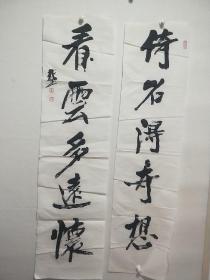 倚石得奇想
看雲多遠懷